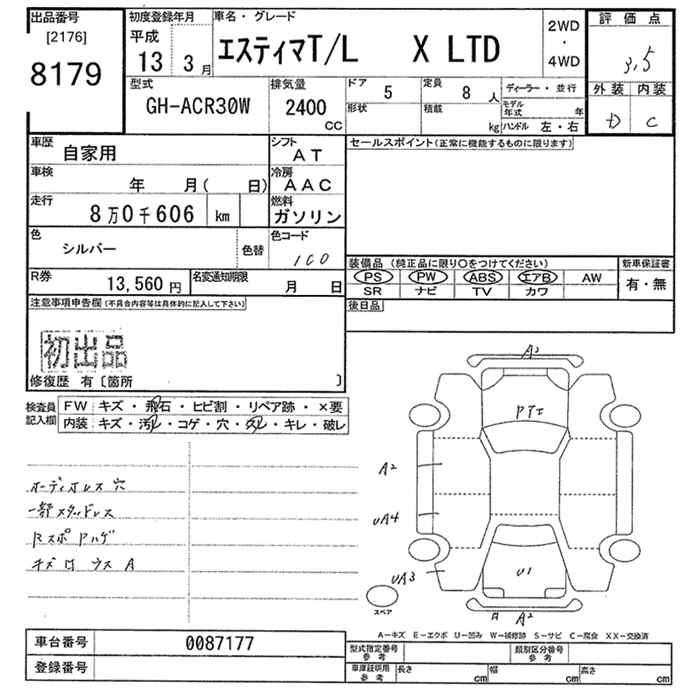 出品番号 初度登録年月 車名・グレード 2WD・4WD 評価点
[2176] 平成
8179 13 3月 エスティマT/L X LTD 3.5
型式 排気量 ドア 5 定員 8人 ディーラー・並行 外装 内装
GH-ACR30W 2400cc 形状 積載 kg モデル年式 年 D C
ハンドル 左・右
車歴 自家用 シフト AT セールスポイント(正常に機能するものに限ります)
車検 年 月( 日) 冷房 AAC
走行 8万0千606 km 燃料 ガソリン
色 シルバー 色替 色コード 100
装備品(純正品に限り○をつけてください) 新車保証書
PS PW ABS エアB AW 有・無
SR ナビ TV カワ
R券 13,560円 名変通知期限 月 日
後日品
注意事項申告欄(不具合内容等は具体的に記入して下さい)
初出品
修復歴 有〔箇所 〕
検査員記入欄 FW キズ・飛石・ヒビ割・リペア跡・×要
内装 キズ・汚レ・コゲ・穴・スレ・キレ・破レ
A2
PTエ
A2
オーディオレス穴
一部スタッドレス
UA4
Rスポ Pハゲ
UA3 U1
スペア
A A2
A-キズ E-エクボ U-凹み W-補修跡 S-サビ C-腐食 XX-交換済
車台番号 0087177
型式指定番号 参考 類別区分番号 参考
登録番号
車庫証明用 参考 長さ cm 幅 cm 高さ cm